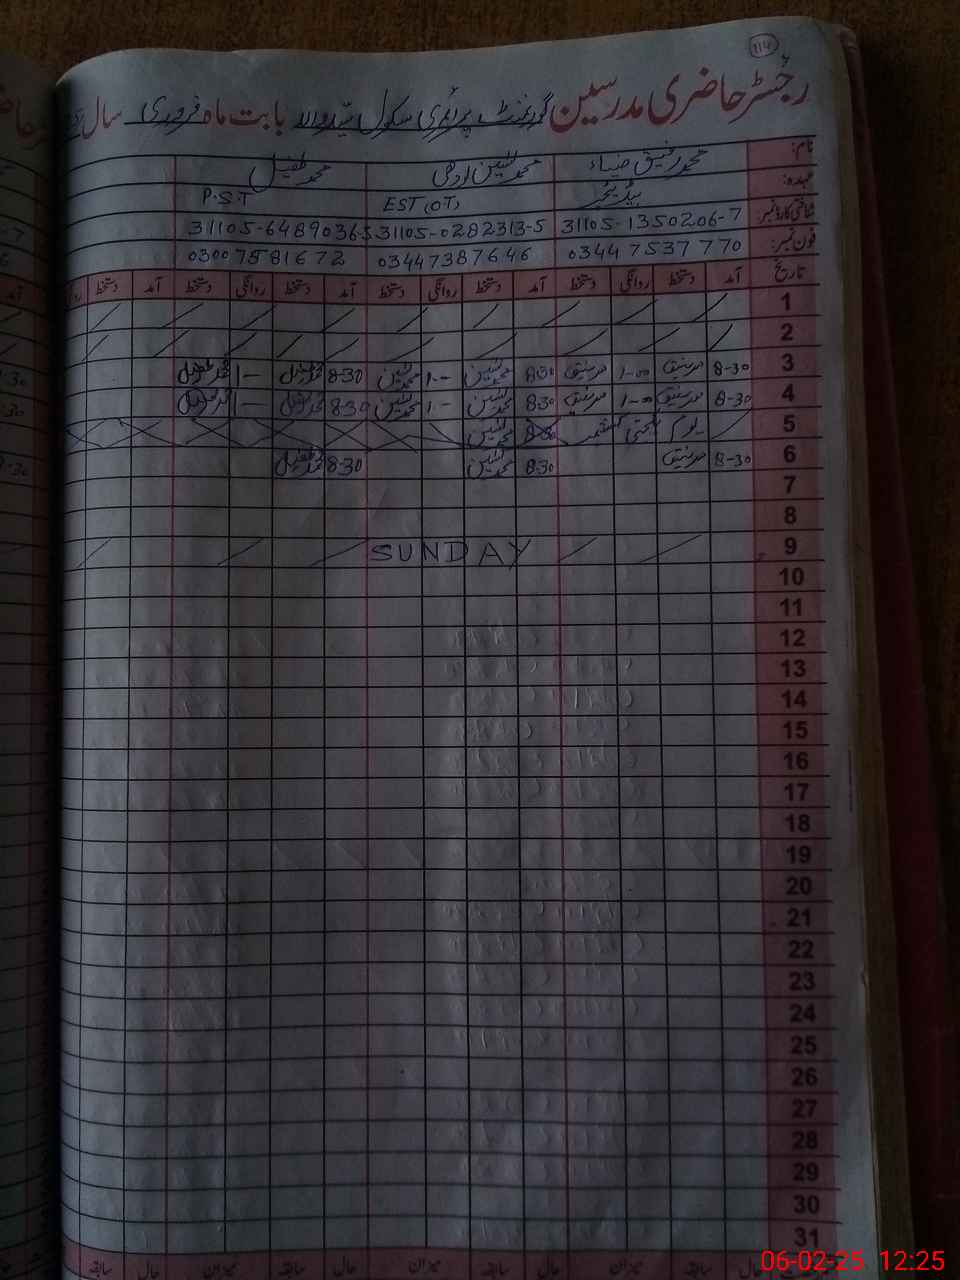 114
رجسٹر حاضری مدرسین گورنمنٹ پرائمری سکول بابت ماہ فروری سال
نام: محمد رفیق ضیاء محمد یٰسین لودھی محمد طفیل
عہدہ: ہیڈ ٹیچر EST(OT) P.S.T
شناختی کارڈ نمبر: 31105-1350206-7 31105-0282313-5 31105-6489036-5
فون نمبر: 03447537770 03447387646 03007581672
تاریخ آمد دستخط روانگی دستخط آمد دستخط روانگی دستخط آمد دستخط روانگی دستخط آمد دستخط
1
2
3 8-30 1-00 8-30 محمد یٰسین 1-- محمد یٰسین 8-30 محمد طفیل 1-- محمد طفیل
4 8-30 1-00 8-30 محمد یٰسین 1-- محمد یٰسین 8-30 محمد طفیل 1-- محمد طفیل
5 یوم یکجہتی کشمیر 8-30 محمد یٰسین
6 8-30 8-30 محمد یٰسین 8-30 محمد طفیل
7
8
9 SUNDAY
10
11
12
13
14
15
16
17
18
19
20
21
22
23
24
25
26
27
28
29
30
31
سابقہ حال میزان سابقہ حال میزان سابقہ حال میزان سابقہ حال
06-02-25 12:25